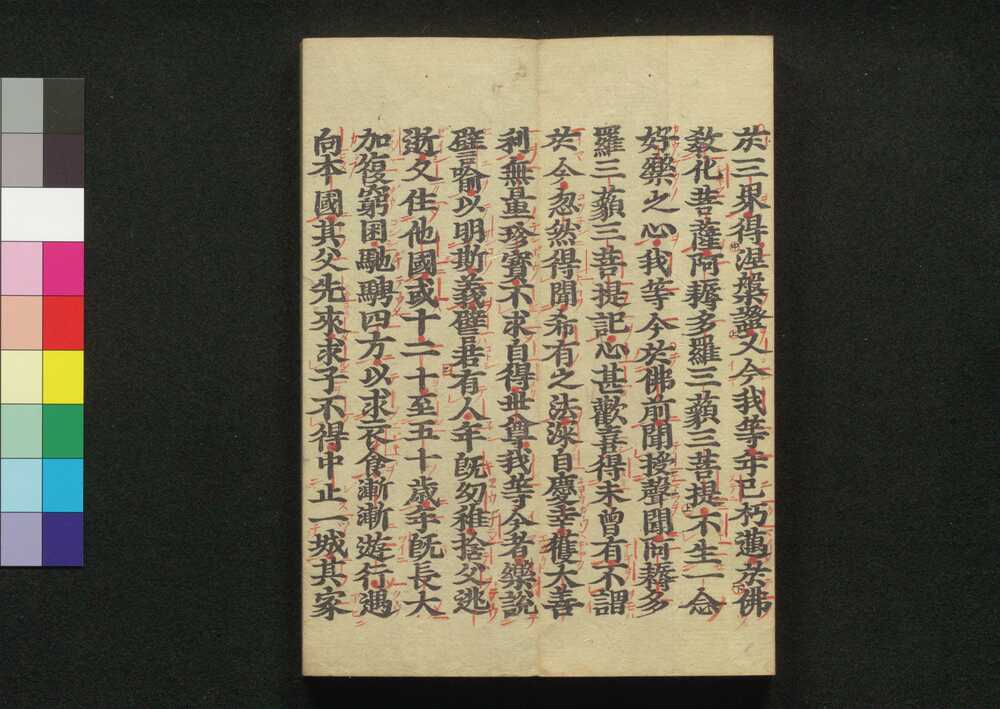 於三界得涅槃證又今我等年已朽邁於佛
教化菩薩阿耨多羅三藐三菩提不生一念
好樂之心我等今於佛前聞授聲聞阿耨多
羅三藐三菩提記心甚歡喜得未曾有不謂
於今忽然得聞希有之法深自慶幸獲大善
利無量珍寶不求自得世尊我等今者樂說
譬喻以明斯義譬若有人年既幼稚捨父逃
逝久住他國或十二十至五十歲年既長大
加復窮困馳騁四方以求衣食漸漸遊行遇
向本國其父先來求子不得中止一城其家